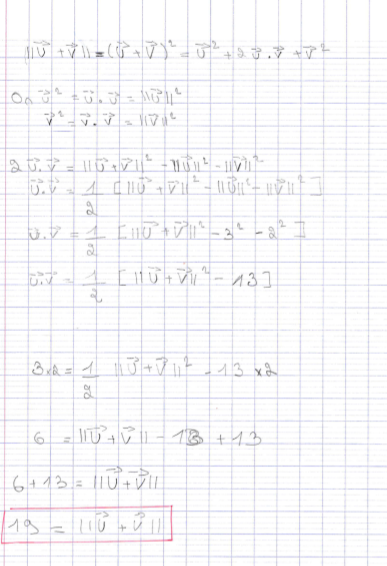 ||u⃗ + v⃗|| = (u⃗ + v⃗)² = u⃗² + 2 u⃗ . v⃗ + v⃗²
On u⃗² = u⃗ . u⃗ = ||u⃗||²
v⃗² = v⃗ . v⃗ = ||v⃗||²
2 u⃗ . v⃗ = ||u⃗ + v⃗||² - ||u⃗||² - ||v⃗||²
u⃗ . v⃗ = 1/2 [ ||u⃗ + v⃗||² - ||u⃗||² - ||v⃗||² ]
u⃗ . v⃗ = 1/2 [ ||u⃗ + v⃗||² - 3² - 2² ]
u⃗ . v⃗ = 1/2 [ ||u⃗ + v⃗||² - 13 ]
3 x 2 = 1/2 ||u⃗ + v⃗||² - 13 x 2
6 = ||u⃗ + v⃗|| - 13 + 13
6 + 13 = ||u⃗ + v⃗||
19 = ||u⃗ + v⃗||